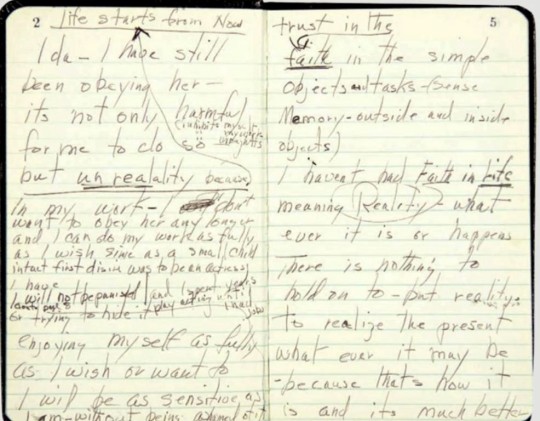 2
life starts from Now
I da - I have still
been obeying her -
its not only harmful
(inhibits myself
my work
for me to do so
but unreality because
In my work - I dont
want to obey her any longer
and I can do my work as fully
as I wish since as a small child
intact first desire was to be an actress
I have
I will not be punished and I spent years
play acting until I had
or trying to hide it
jobs
enjoying myself as fully
as I wish or want to
I will be as sensitive as
I am - without being ashamed of it
5
trust in the
faith in the simple
objects - tasks - (sense
Memory - outside and inside
objects)
I havent had Faith in Life
meaning Reality - what
ever it is or happens
There is nothing to
hold on to - but reality
to realize the present
what ever it may be
- because thats how it
is and its much better